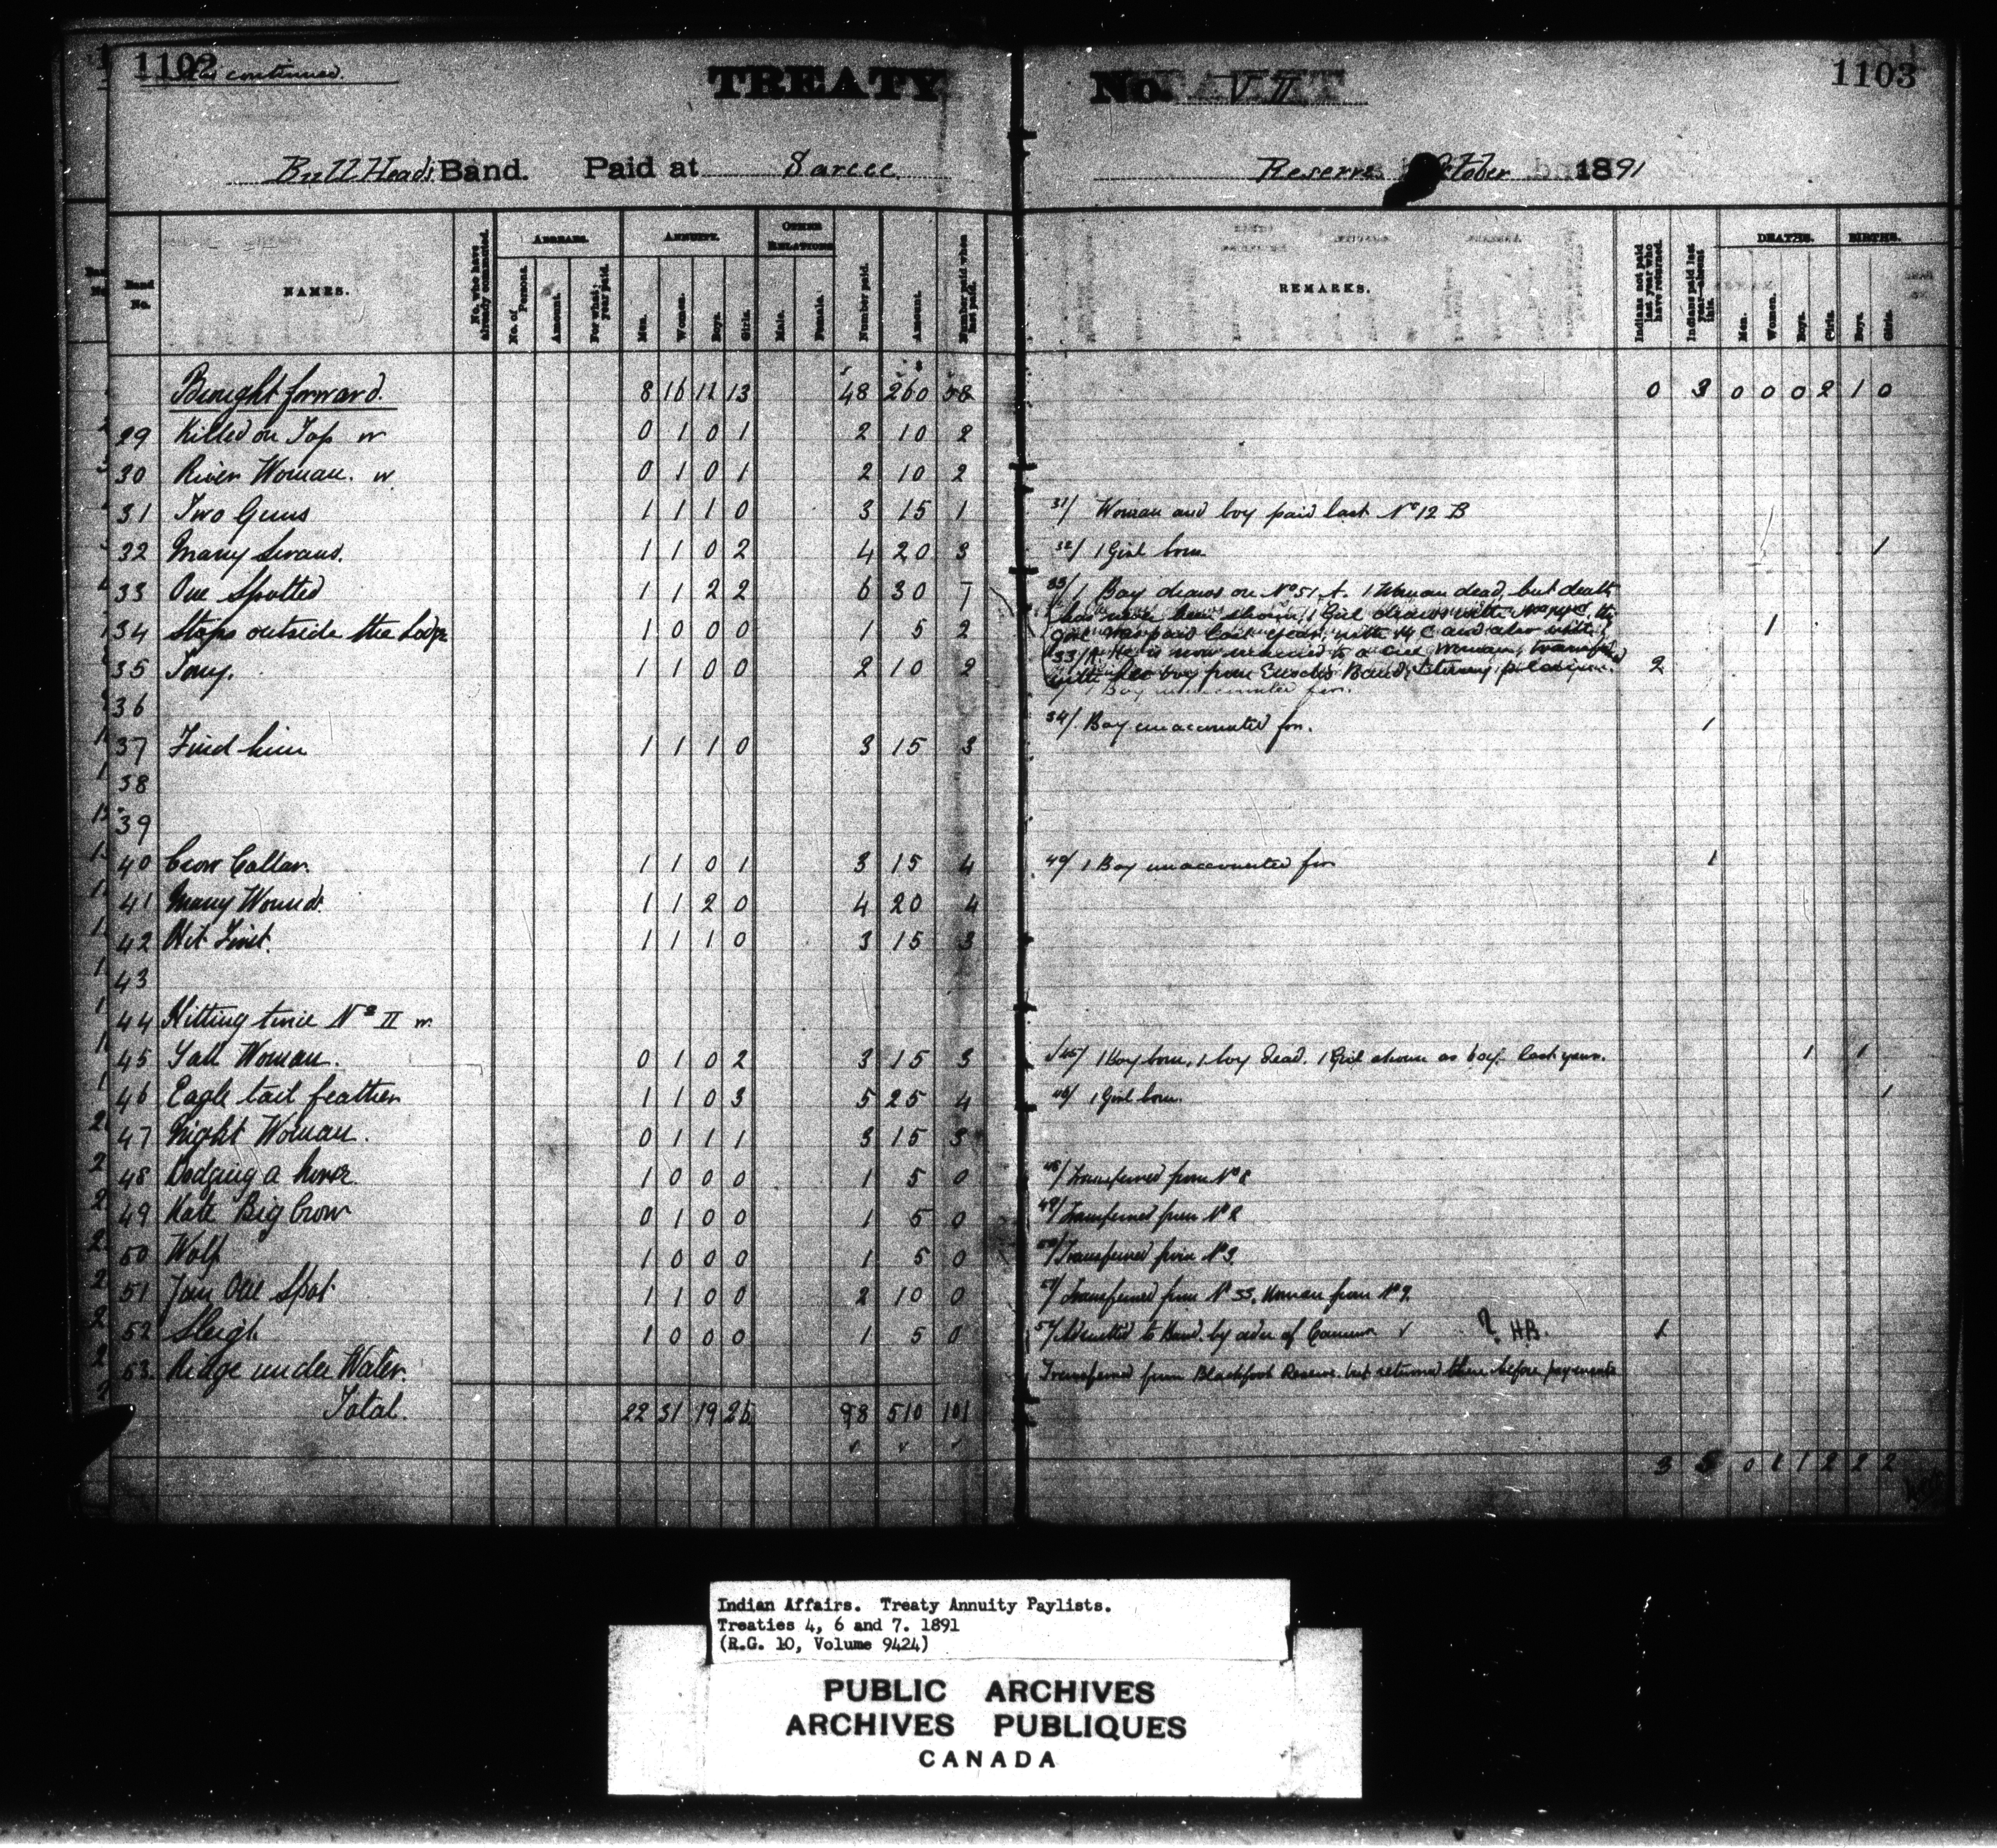 1102
continued.
TREATY No. VII
1103
Bull Head's Band. Paid at Sarcee Reserve October 1891
Band No.
NAMES.
No. who have already commuted.
ARREARS.
No. of Persons.
Amount.
For what year paid.
ANNUITY.
Men.
Women.
Boys.
Girls.
OTHER RELATIONS
Male.
Female.
Number paid.
Amount.
Number paid when last paid.
REMARKS.
Indians not paid last year who have returned.
Indians paid last year—absent this.
DEATHS.
Men.
Women.
Boys.
Girls.
BIRTHS.
Boys.
Girls.
Brought forward. 8 16 11 13 48 260 58 0 3 0 0 0 2 1 0
29 Killed on Top w 0 1 0 1 2 10 2
30 River Woman. w. 0 1 0 1 2 10 2
31 Two Guns 1 1 1 0 3 15 1 31/ Woman and boy paid last No 12 B
32 Many Swans. 1 1 0 2 4 20 3 32/ 1 Girl born 1
33 One Spotted 1 1 2 2 6 30 7 33/ 1 Boy draws on No 51 A. 1 Woman dead, but death
has never been shown, 1 Girl draws with
34 Stops outside the Lodge 1 0 0 0 1 5 2 girl was paid last year, with 14 C and also with 1
33/A. He is now married to a Cree Woman, transferred
35 Tony. 1 1 0 0 2 10 2 with her boy from Band, 2
1 Boy unaccounted for.
36
34/. Boy unaccounted for. 1
37 Find him 1 1 1 0 3 15 3
38
39
40 Crow Collar. 1 1 0 1 3 15 4 40/ 1 Boy unaccounted for 1
41 Many Wounds. 1 1 2 0 4 20 4
42 Hit First. 1 1 1 0 3 15 3
43
44 Hitting twice No II w.
45 Tall Woman. 0 1 0 2 3 15 3 45/ 1 Boy born, 1 boy dead. 1 Girl shown as boy last year. 1 1
46 Eagle tail feather 1 1 0 3 5 25 4 46/ 1 Girl born. 1
47 Night Woman. 0 1 1 1 3 15 3
48 Dodging a horse. 1 0 0 0 1 5 0 48/ Transferred from No 8
49 Kate Big Crow 0 1 0 0 1 5 0 49/ Transferred from No 2
50 Wolf 1 0 0 0 1 5 0 50/ Transferred from No 3.
51 Jim One Spot 1 1 0 0 2 10 0 51/ Transferred from No 33. Woman from No 9.
52 Sleigh 1 0 0 0 1 5 0 52/ Admitted to Band by order of Commr ✓ ? H.B. 1
53. Ridge under Water. Transferred from Blackfoot Reserve but returned there before payments
Total. 22 31 19 26 98 510 101
✓ ✓ ✓
3 5 0 1 1 2 2 2
Indian Affairs. Treaty Annuity Paylists.
Treaties 4, 6 and 7. 1891
(R.G. 10, Volume 9424)
PUBLIC ARCHIVES
ARCHIVES PUBLIQUES
CANADA